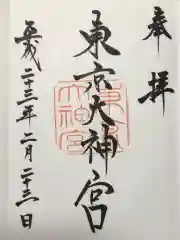 奉拝
東京大神宮
平成二十三年二月二十三日
東京大神宮